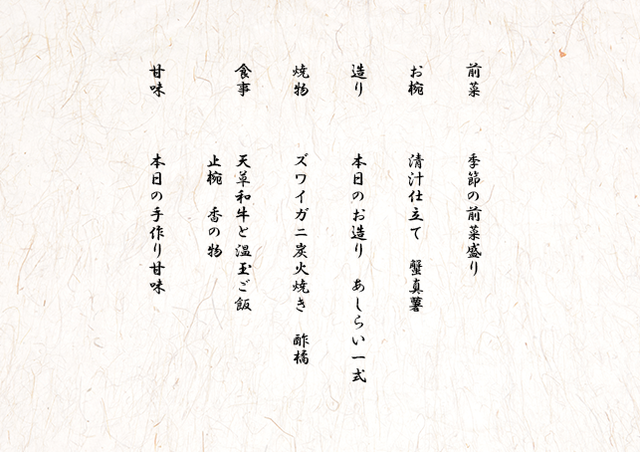 前菜　季節の前菜盛り
お椀　清汁仕立て　蟹真薯
造り　本日のお造り　あしらい一式
焼物　ズワイガニ炭火焼き　酢橘
食事　天草和牛と温玉ご飯
止椀　香の物
甘味　本日の手作り甘味